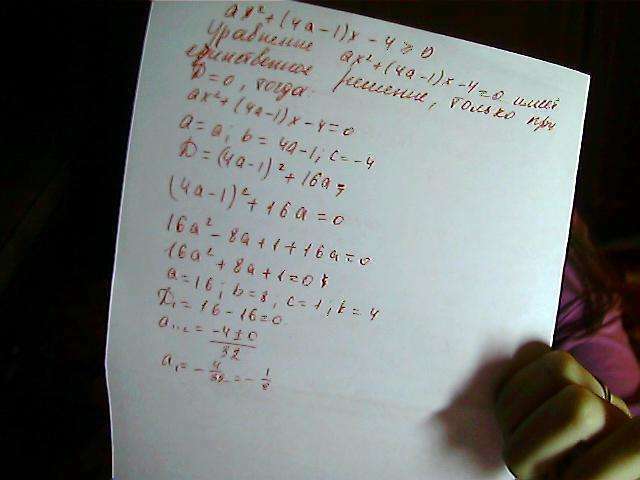 ax² + (4a-1)x - 4 ≥ 0
Уравнение ax² + (4a-1)x - 4 = 0 имеет
единственное решение, только при
D = 0, тогда:
ax² + (4a-1)x - 4 = 0
a = a; b = 4a-1; c = -4
D = (4a-1)² + 16a;
(4a-1)² + 16a = 0
16a² - 8a + 1 + 16a = 0
16a² + 8a + 1 = 0;
a = 16; b = 8, c = 1; k = 4
D₁ = 16 - 16 = 0
a₁,₂ = (-4±0)/32
a₁ = -4/32 = -1/8